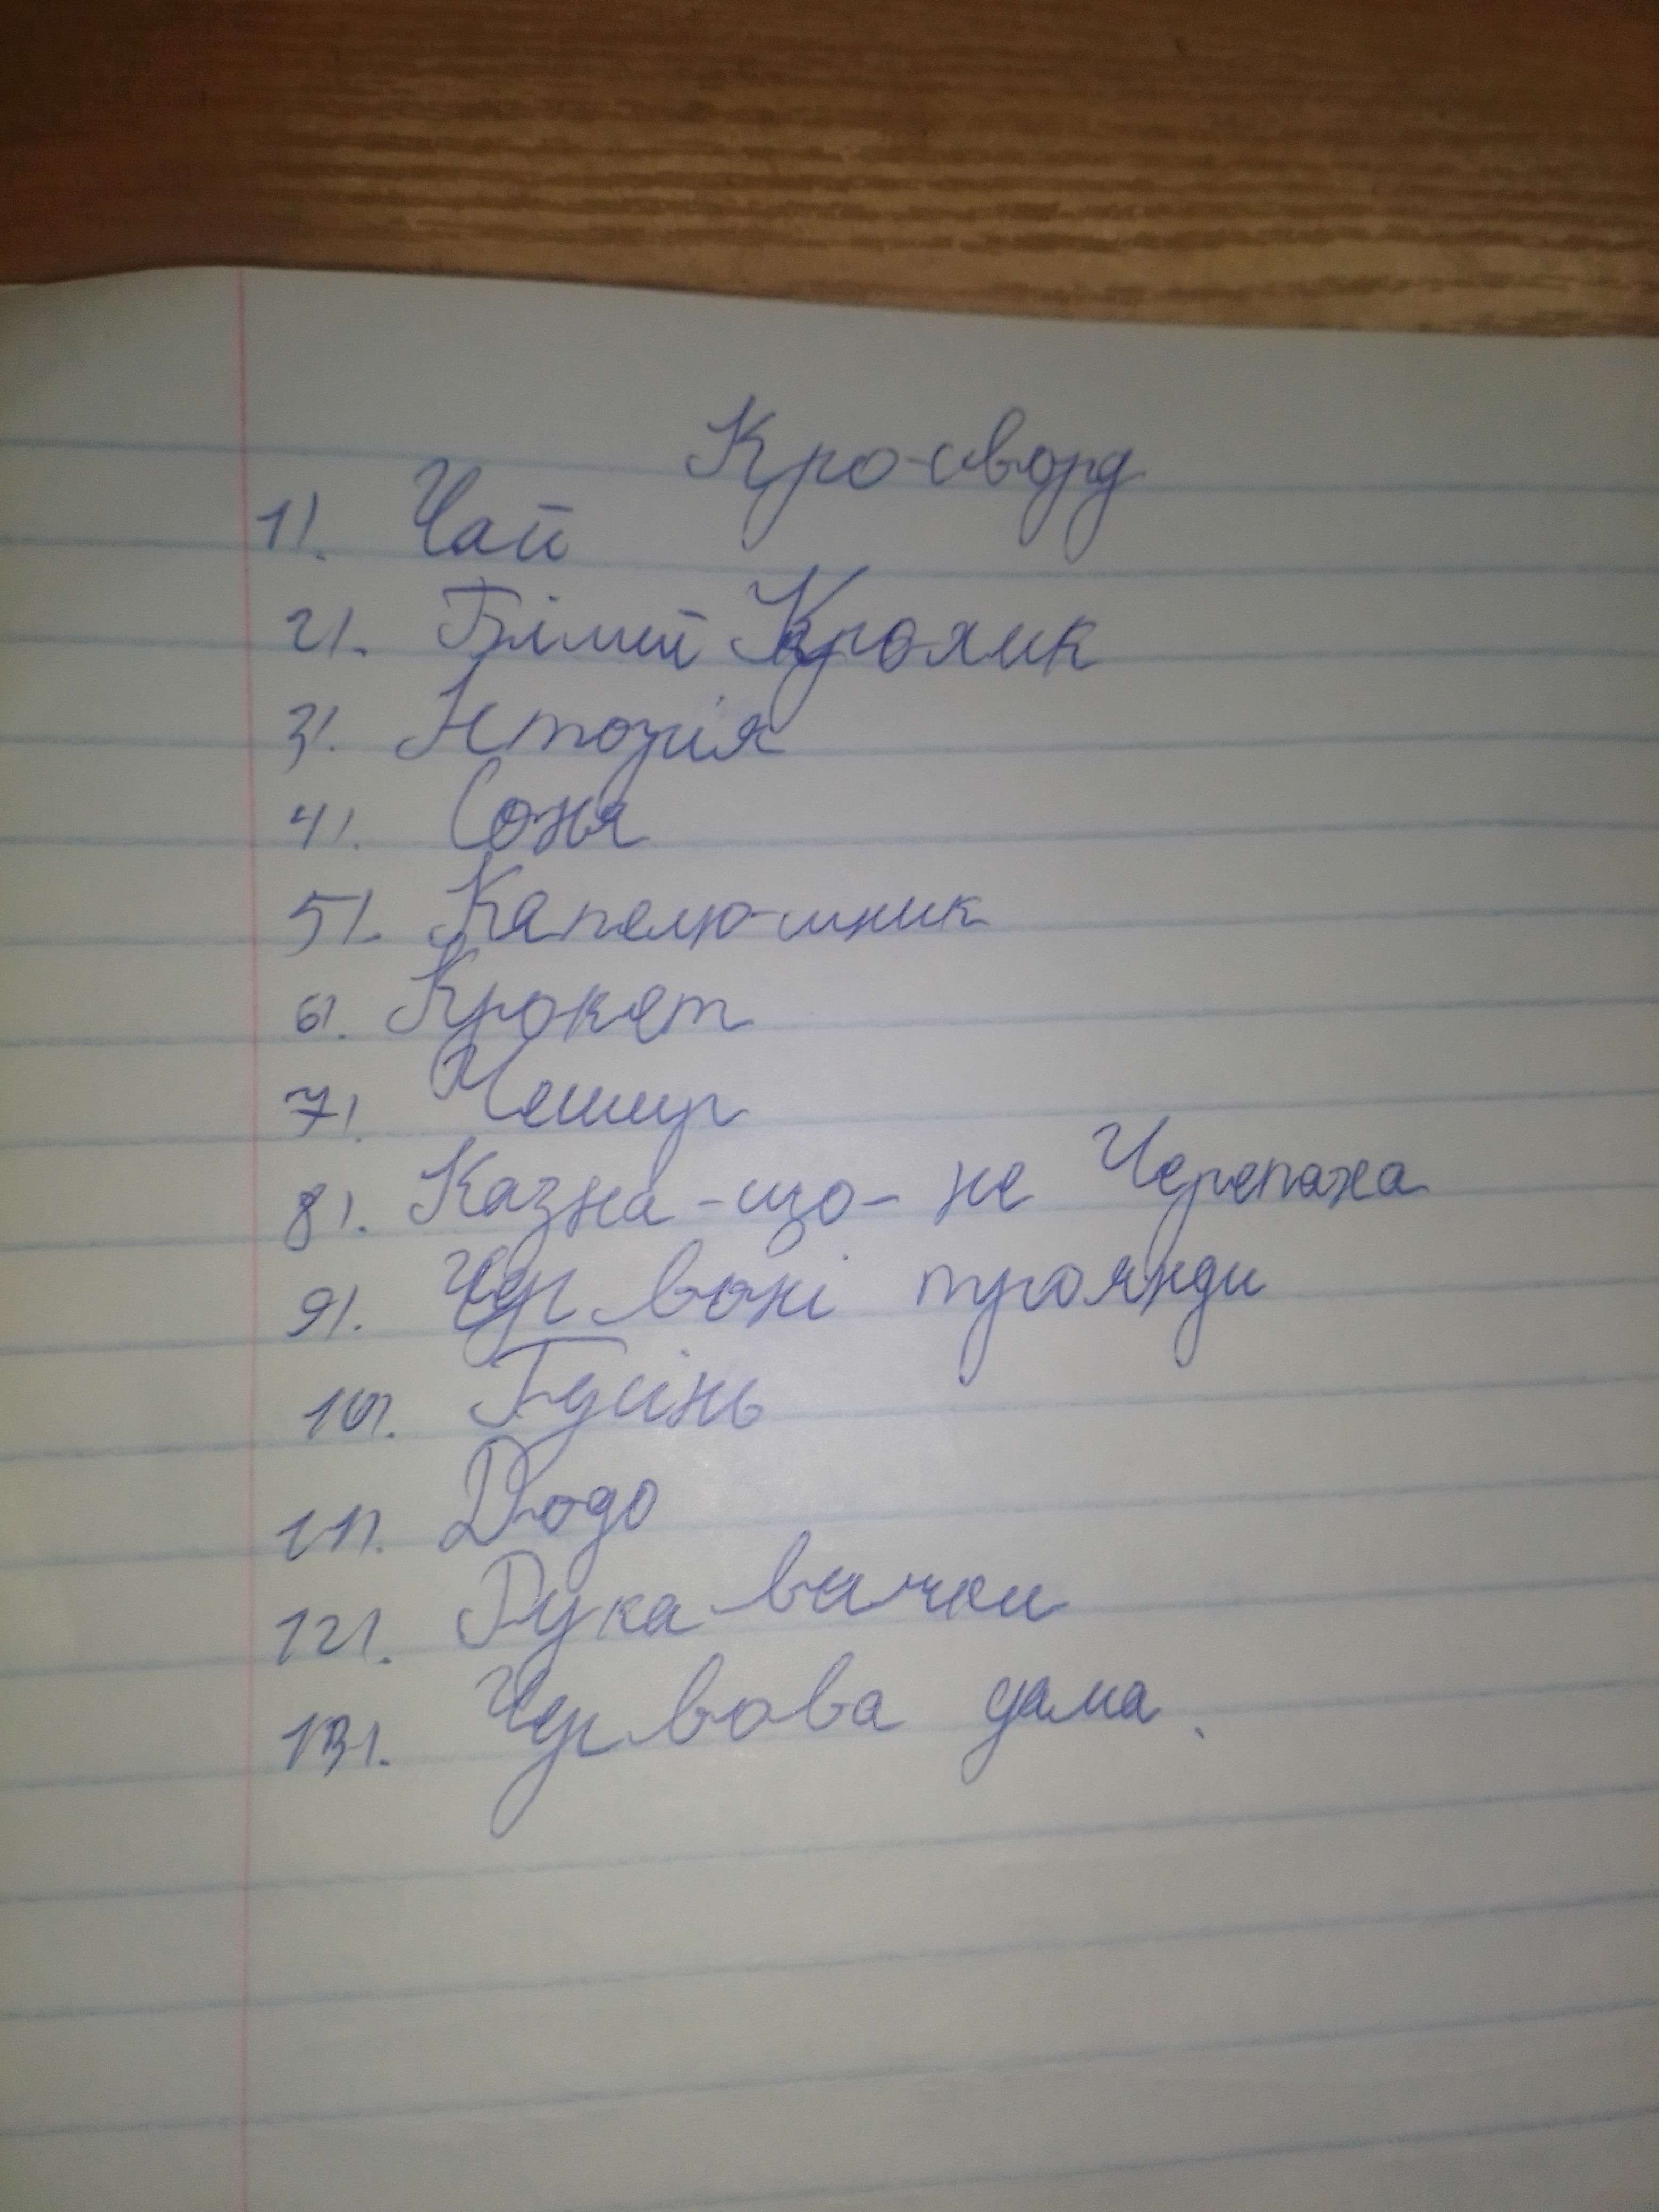 Кросворд
1). Чай
2). Білий Кролик
3). Історія
4). Соня
5). Капелюшник
6). Крокет
7). Чешир
8). Казна-що-не Черепаха
9). Червоні троянди
10). Гусінь
11). Додо
12). Рукавички
13). Червова дама.